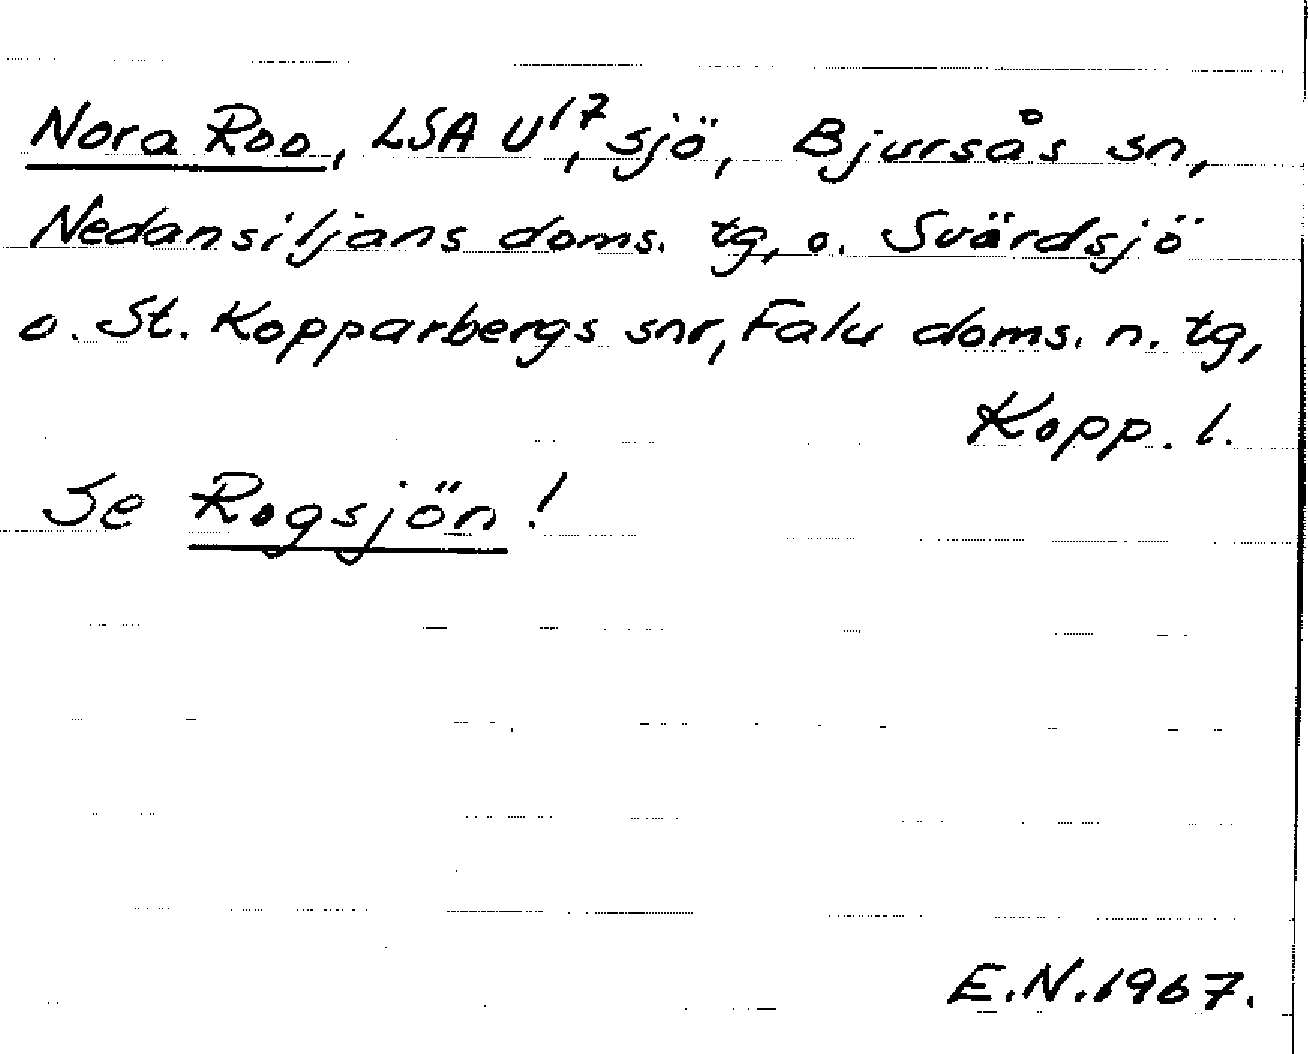 Nora Roo, LSA U17, sjö, Bjursås sn,
Nedansiljans doms. tg, o. Svärdsjö
o. St. Kopparbergs snr, Falu doms. n. tg,
Kopp. l.
Se Rogsjön!
E.N. 1967.